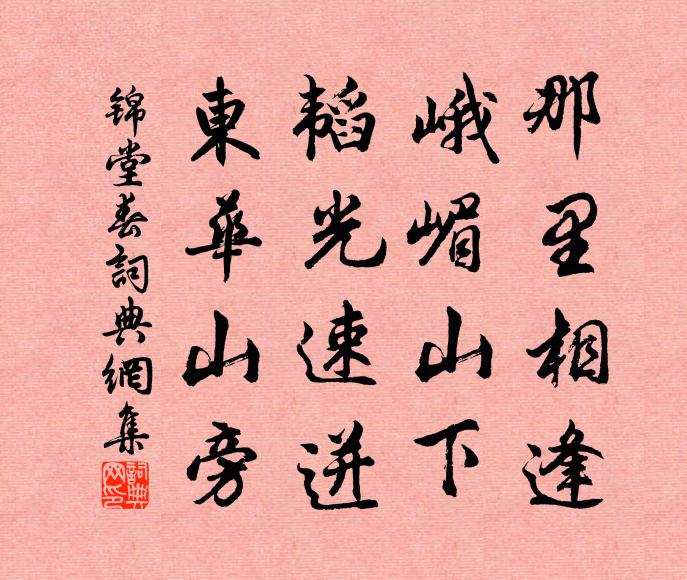 那里相逢
峨嵋山下
韬光速迸
東華山旁
锦堂春詞典網集
詞典网印